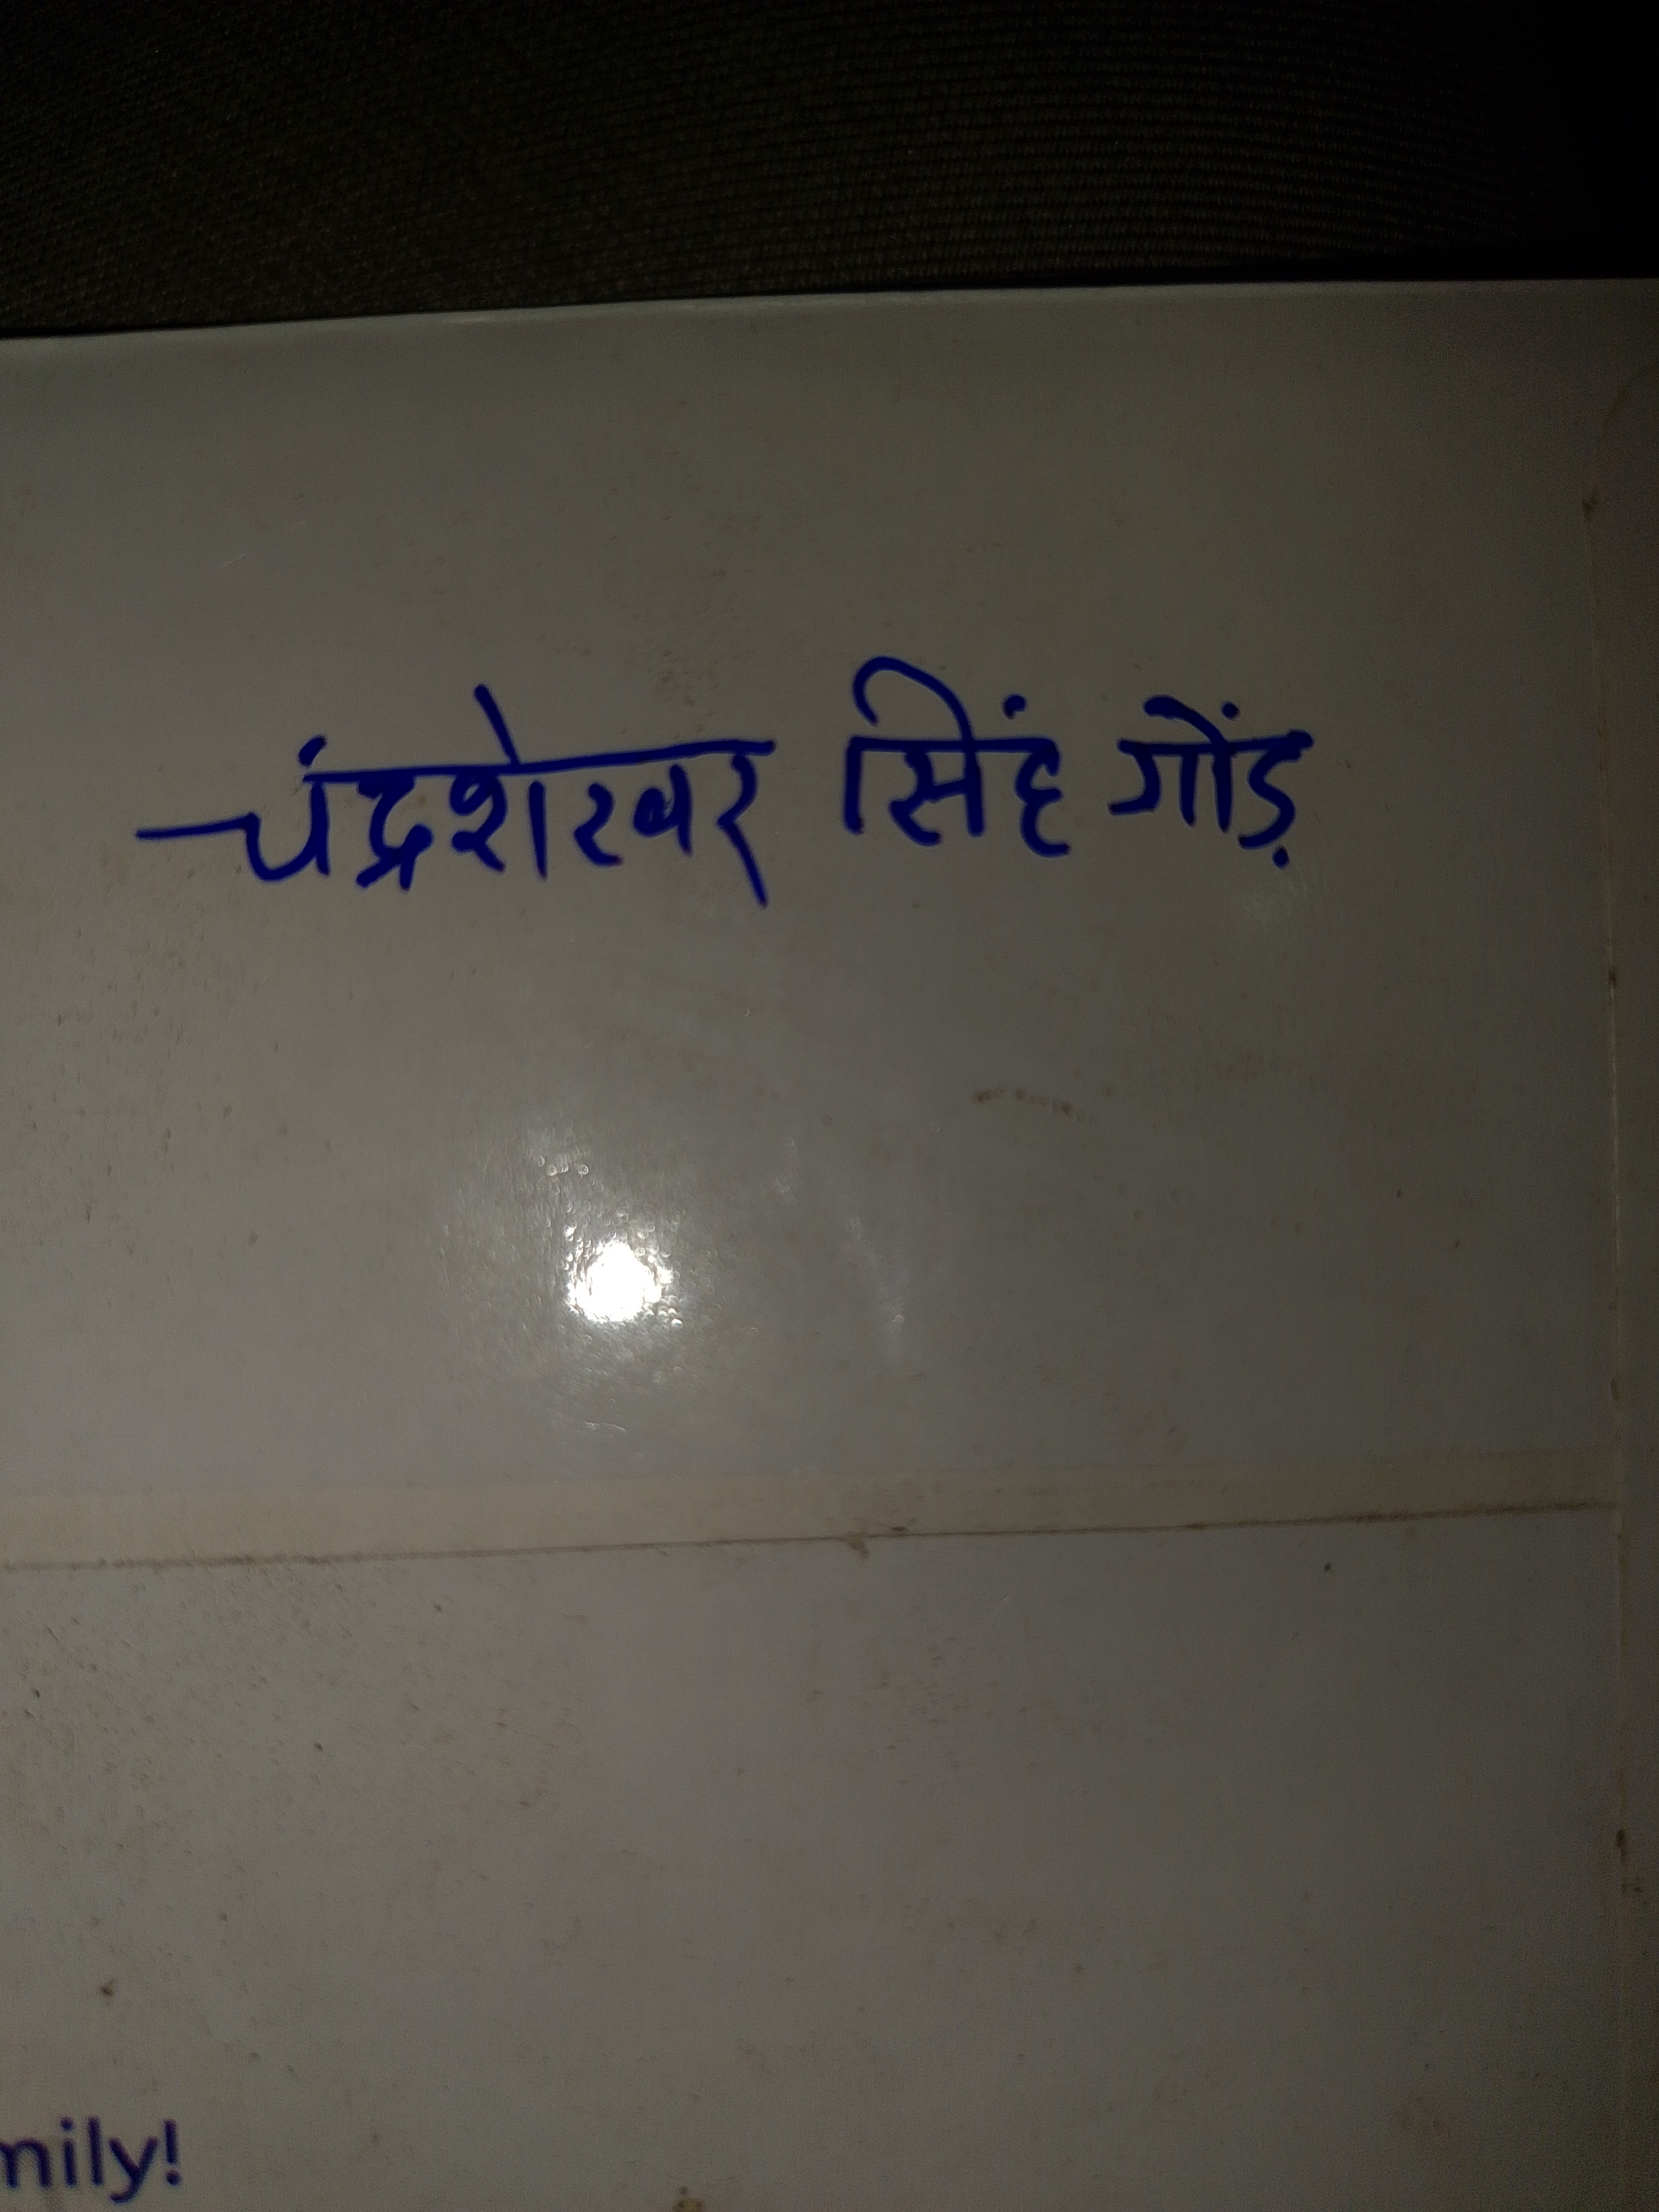 चंद्रशेखर सिंह गोंड़
mily!